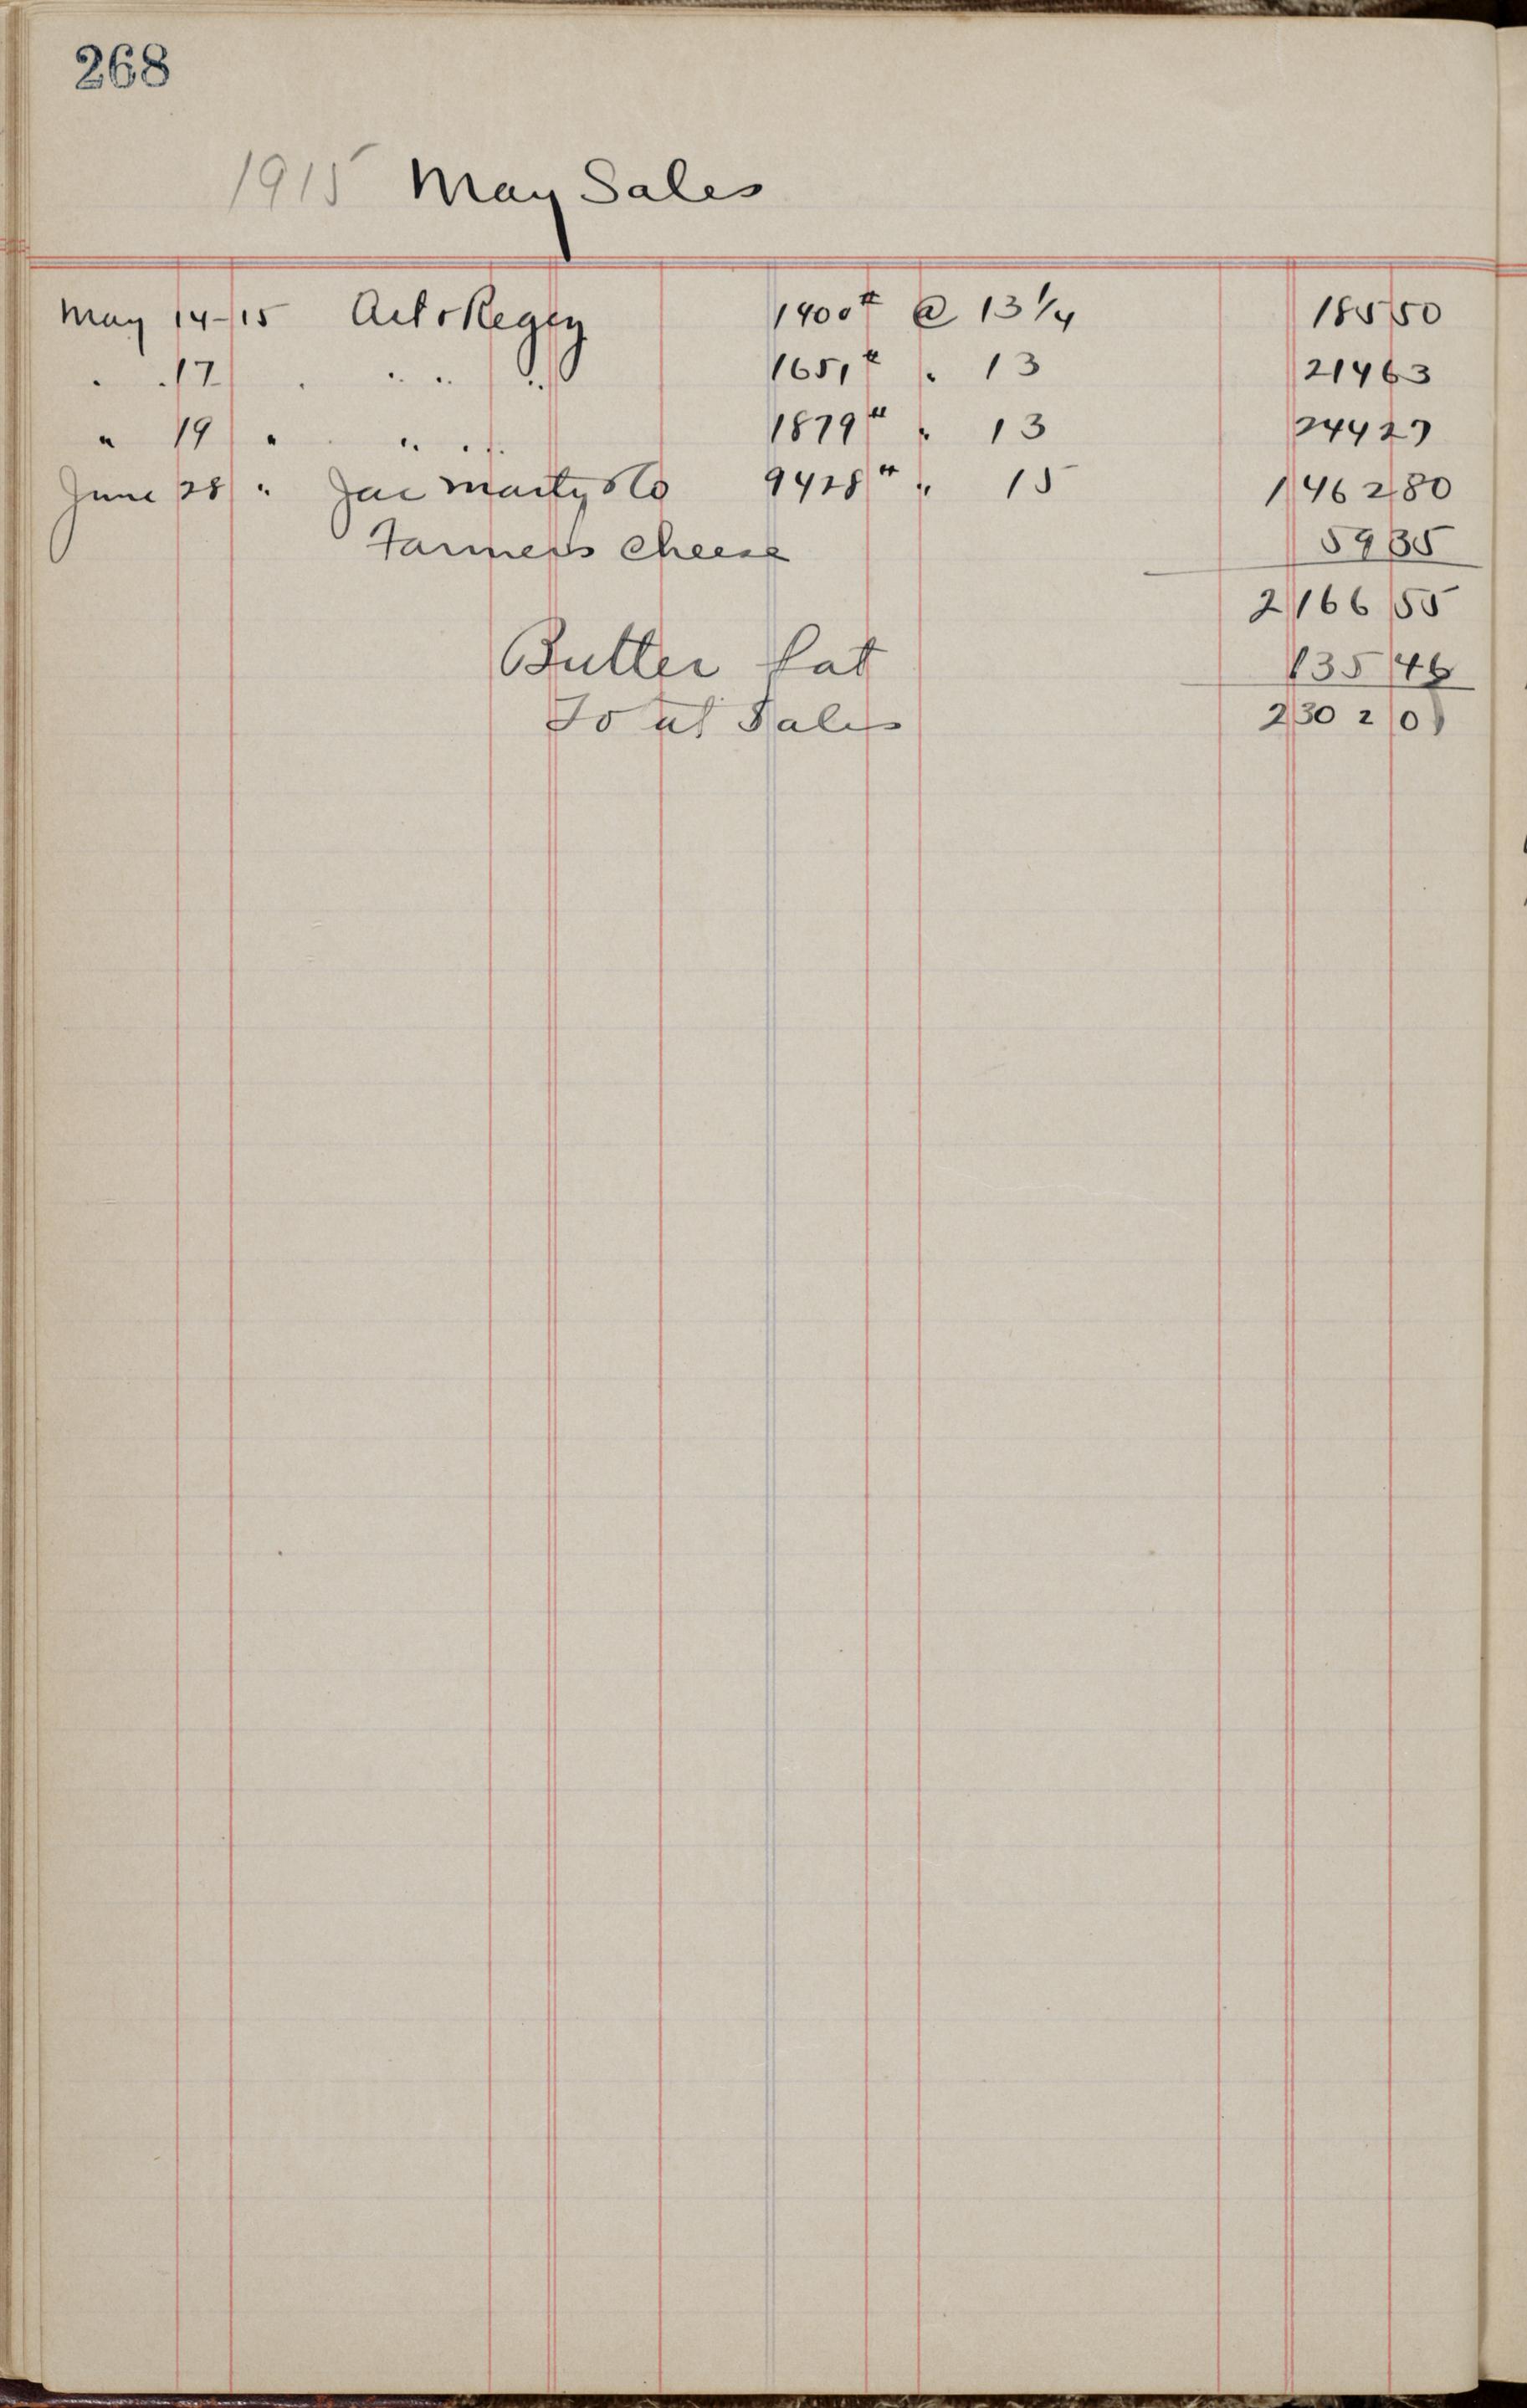 268
1915 May Sales
May 14-15 Act & Regey 1400# @ 13 1/4 185 50
" " 17 " " " " 1651# " 13 214 63
" 19 " " " 1879# " 13 244 27
June 28 " Jac Marty & Co 9428# " 15 1462 80
Farmers Cheese 59 35
2166 55
Butter fat 135 46
Total Sales 2302 01